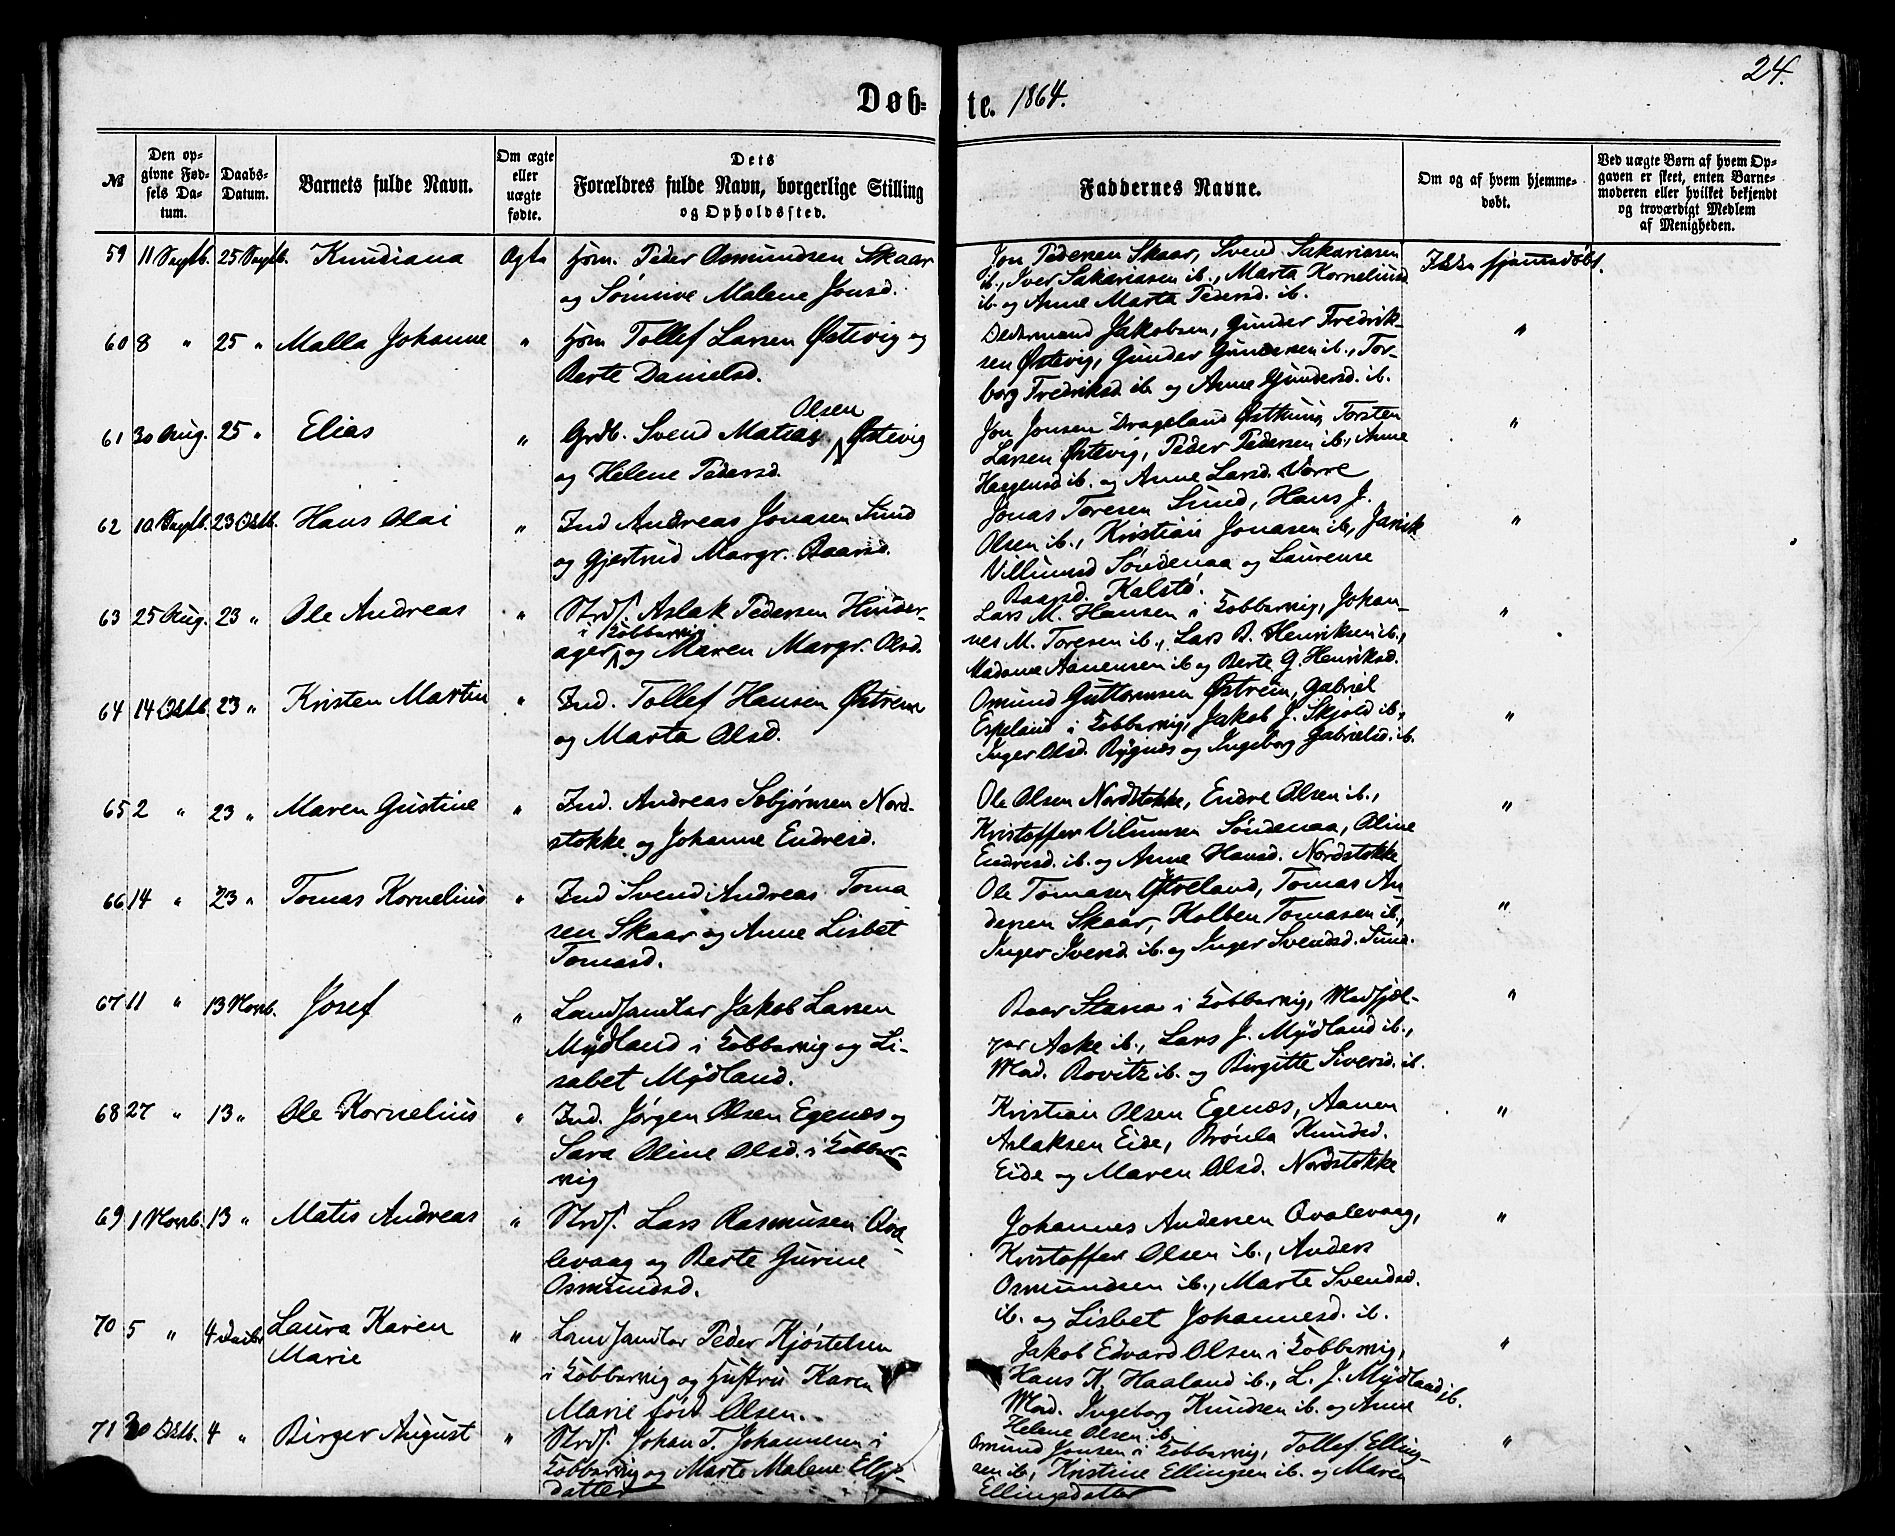 24.
Døb- te. 1864.
№
Den opgivne Fødsels Datum.
Daabs-Datum.
Barnets fulde Navn.
Om ægte eller uægte fødte.
Dets Forældres fulde Navn, borgerlige Stilling og Opholdssted.
Faddernes Navne.
Om og af hvem hjemmedøbt.
Ved uægte Børn af hvem Opgaven er skeet, enten Barnemoderen eller hvilket bekjendt og troværdigt Medlem af Menigheden.
59 11 Septb. 25 Septb. Knudiana Ægte Hsm. Peder Osmundsen Skaar
og Sømine Malene Jonsd.
Jon Pedersen Skaar, Svend Sakariasen
ib., Iver Sakariasen ib., Marta Korneliusd.
ib. og Anne Marta Pedersd. ib.
Ikke hjemmedøbt.
60 8 " 25 " Malla Johanne " Hsm Tollef Larsen Østevig og
Berte Danielsd.
Jakobsen, Gunder Fredrik-
sen Østevig, Gunder Gundersen ib., Tor-
borg Fredriksd. ib. og Anne Gundersd. ib.
"
61 30 Aug. 25 " Elias " Grdb. Svend Matias Olsen Østevig
og Helene Pedersd.
Jon Jonsen Drageland Østhuus, Torsten
Larsen Østevig, Peder Pedersen ib., Anne
ib. og Anne Larsd. Vorre
"
62 10 Septb. 23 Oktb. Hans Olai " Ind Andreas Jonasen Sund
og Gjertrud Margr. Baarsd.
Jonas Toresen Sund, Hans J.
Olsen ib., Kristian Jonasen ib.,
Villumsd Søndenaa og Laurense
Baarsd. Kalstø.
"
63 25 Aug. 23 " Ole Andreas " Strds. Aslak Pedersen Hinder-
ager i Kobbervig og Maren Margr. Olsd.
Lars M. Hansen i Kobbervig, Johan-
nes M. Toresen ib., Lars B. Henriksen ib.,
Madame Aanensen ib og Berte G. Henriksd.
"
64 14 Oktb. 23 " Kristen Martin " Ind. Tollef Hansen Østrem
og Marta Olsd.
Osmund Guttormsen Østrem, Gabriel
Espeland i Kobbervig, Jakob J. Skjold ib.,
Inger Olsd. Bygnes og Ingeborg Gabrielsd. ib.
"
65 2 " 23 " Maren Gustine " Ind. Andreas Sebjørnsen Nord-
stokke og Johanne Endresd.
Ole Olsen Nordstokke, Endre Olsen ib.,
Kristoffer Vilumsen Søndenaa, Oline
Endresd. ib. og Anne Hansd. Nordstokke
"
66 14 " 23 " Tomas Kornelius " Ind Svend Andreas Toma
sen Skaar og Anne Lisbet
Tomasd.
Ole Tomasen Østreland, Tomas An
dersen Skaar, Kolben Tomasen ib.,
Inger Iversd. ib. og Inger Svendsd. Sund.
"
67 11 " 13 Novb. Josef " Landhandler Jakob Larsen
Mydland i Kobbervig og Li-
sabet Mydland.
Baar Stava i Kobbervig, Madhjæl-
per Aske ib., Lars J. Mydland ib.,
Mad. Rovitz ib. og Birgitte Siversd. ib.
"
68 27 " 13 " Ole Kornelius " Ind. Jørgen Olsen Egenæs og
Sara Oline Olsd. i Kobber-
vig
Kristian Olsen Egenæs, Aanen
Aslaksen Eide, Brønla Knudsd.
Eide og Maren Olsd. Nordstokke
"
69 1 Novb. 13 " Matis Andreas " Strds. Lars Rasmusen Qva-
levaag og Berte Gurine
Osmundsd.
Johannes Andersen Qvalevaag,
Kristoffer Olsen ib., Anders
Osmundsen ib., Marte Svendsd.
ib. og Lisbet Johannesd. ib.
"
70 5 " 4 Decbr Laura Karen
Marie " Landhandler Peder Kjøstelsen
i Kobbervig og Hustru Karen
Marie født Olsen.
Jakob Edvard Olsen i Kobbervig,
Hans K. Haaland ib., L. J. Mydland ib.
Mad. Ingeborg Knudsen ib. og Anne
Helene Olsen ib.
"
71 30 Oktb. 4 " Birger August " Strds. Johan T. Johannesen i
Kobbervig og Marte Malene Ellings-
datter
Osmund Jonsen i Kobbervig, Tollef Elling-
sen ib., Kristine Ellingsen ib. og Maren
Ellingsdatter
"